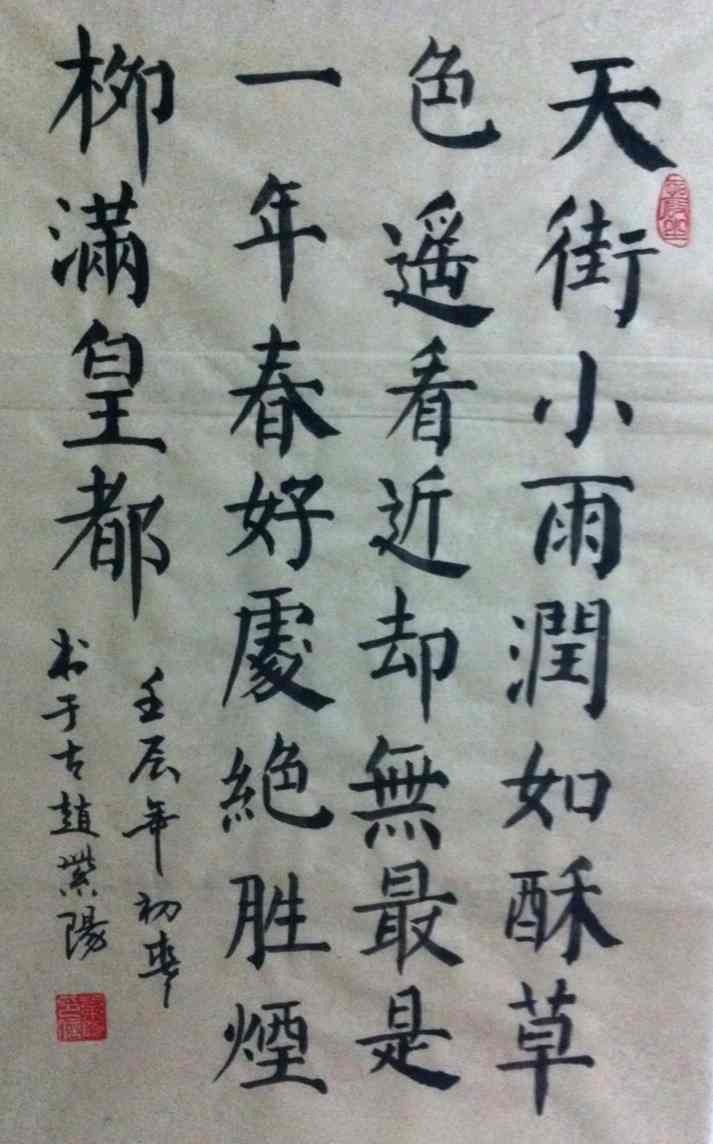 天街小雨潤如酥草
色遥看近却無最是
一年春好處絶胜煙
柳滿皇都
壬辰年初春
于古趙紫陽